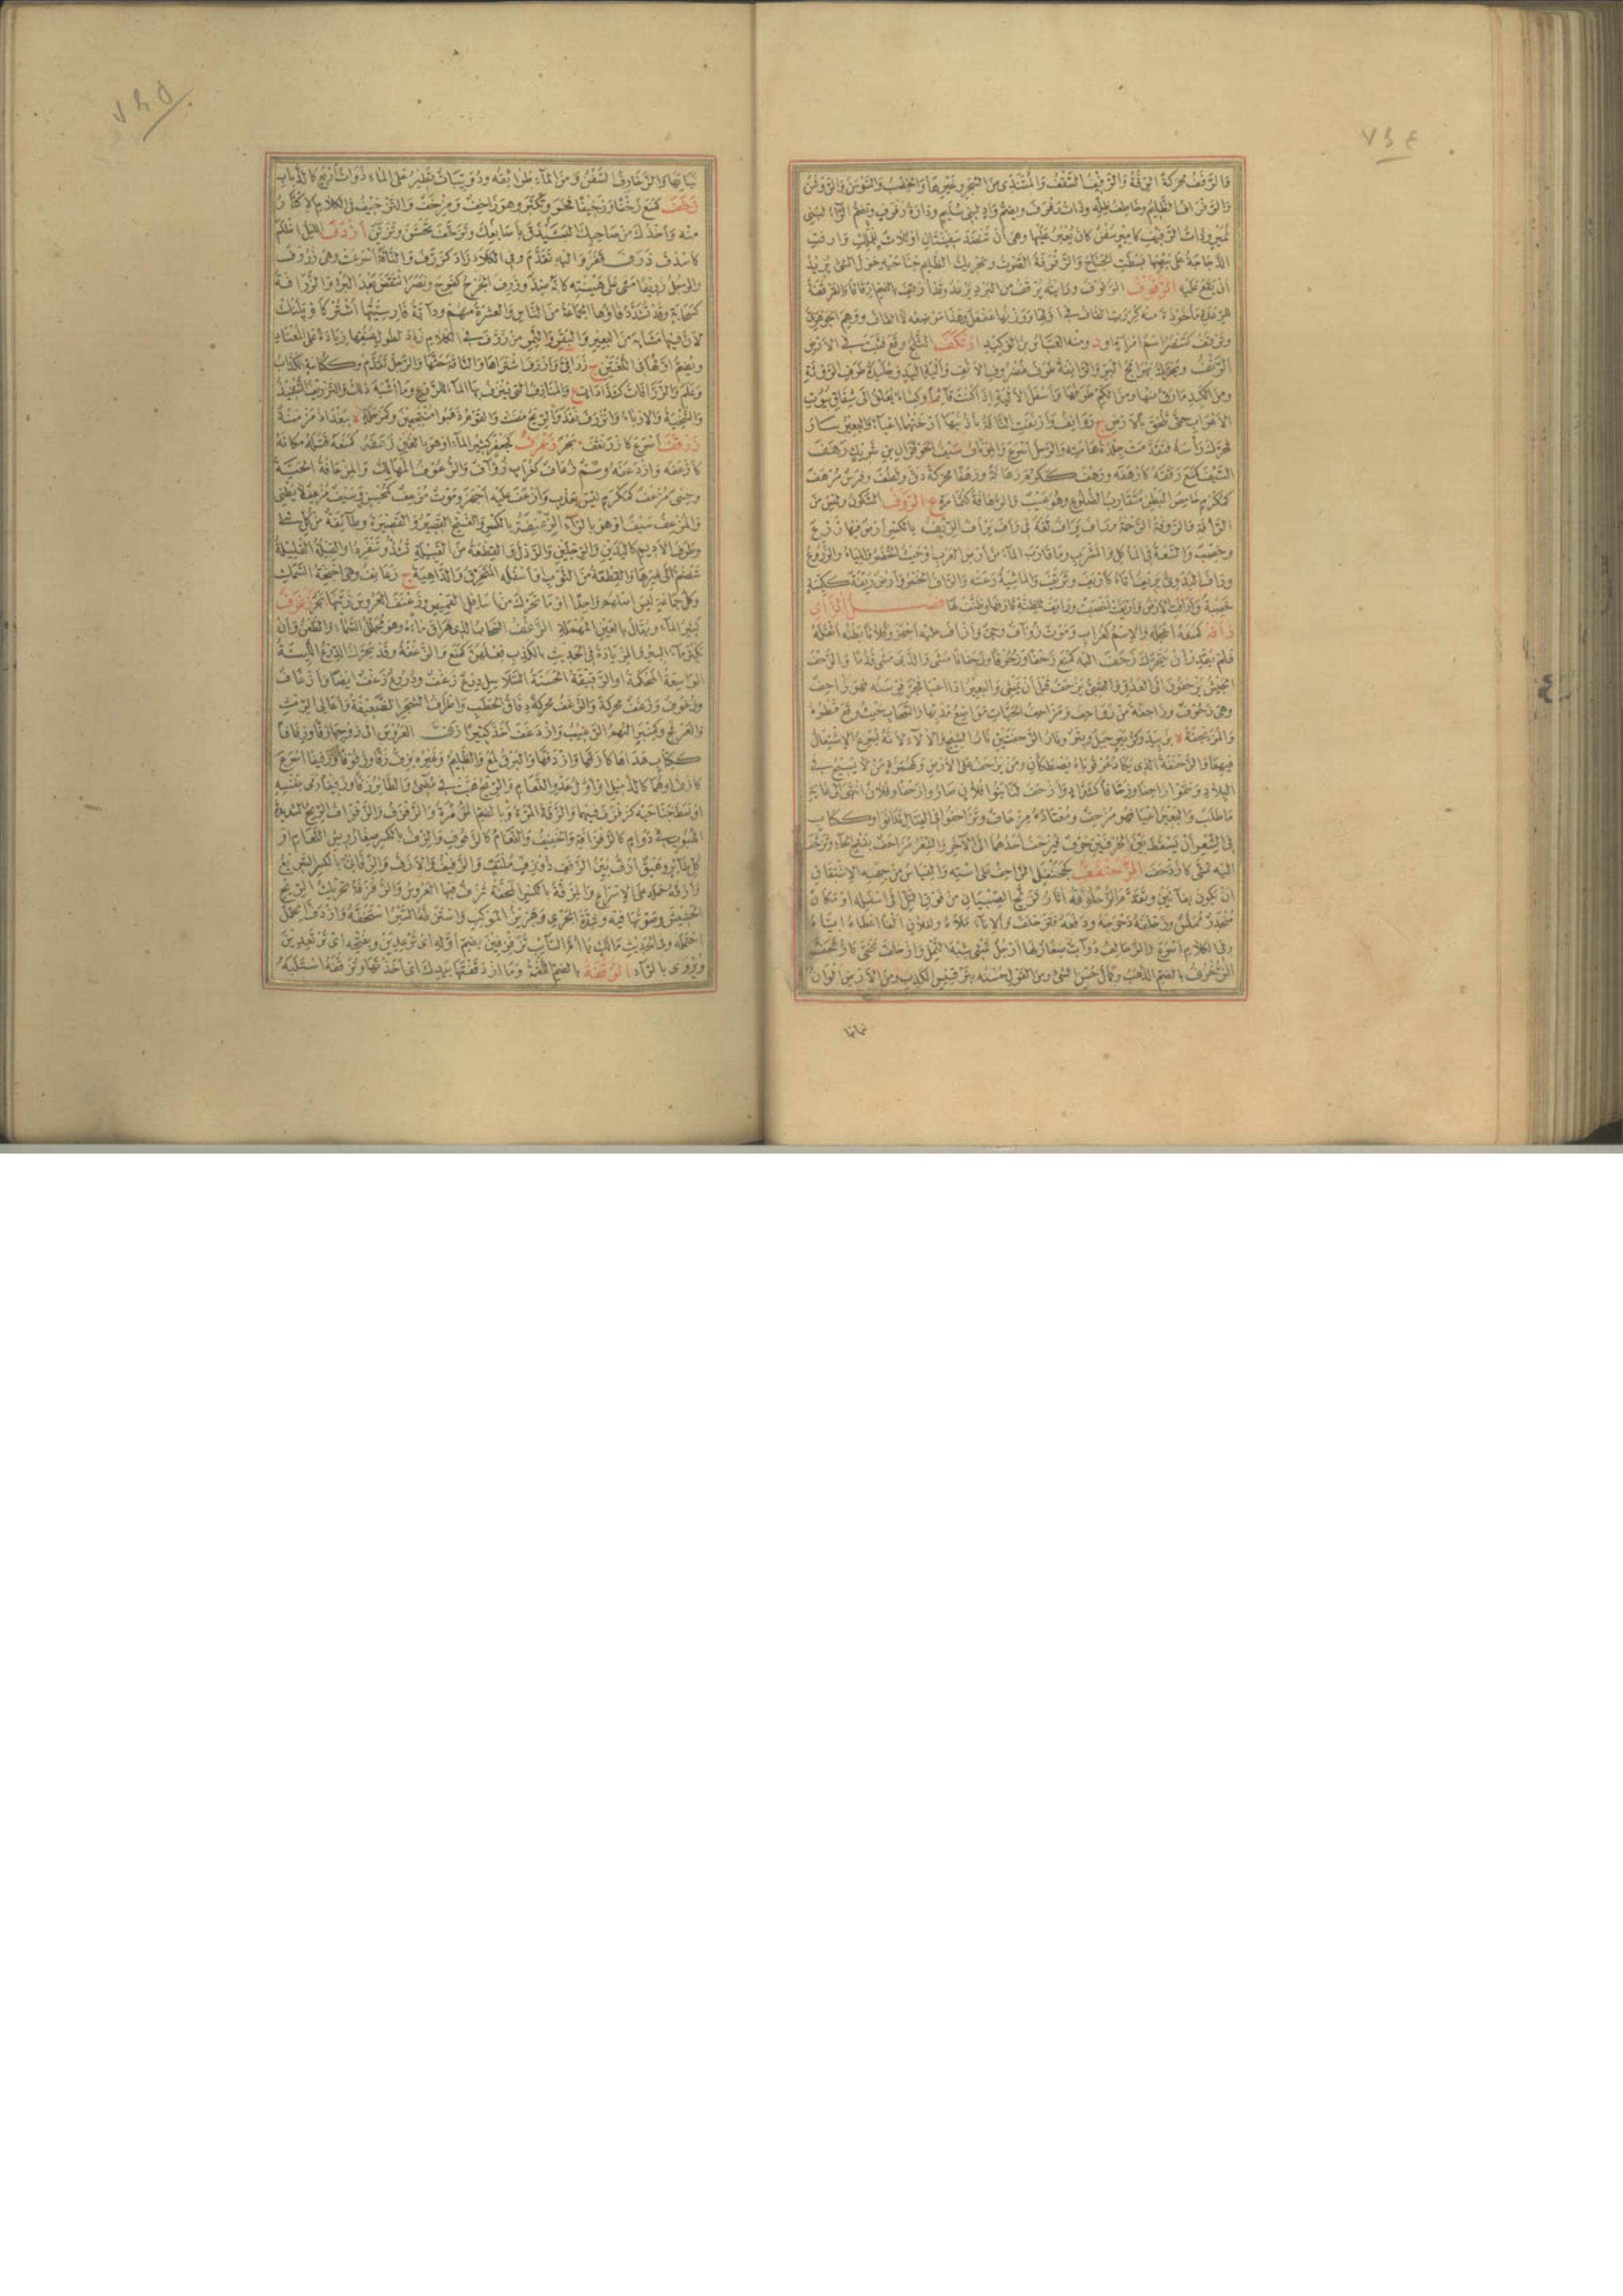 ٧٤٤
والرفف محركة الرقة والرفيف السقف والمتندي من الشجر وغيرها والخصب والسوسن والروشن
والرفراف الظليم وخاطف ظله وذات رفرف ويضم واد لبني سليم ودارة رفرف وتضم الراء لبني
نمير وذات الرفيف كامير سفن كان يعبر عليها وهي ان تنضد سفينتان او ثلاث للملك وارفت
الدجاجة على بيضها بسطت الجناح والرفرفة الصوت وتحريك الظليم جناحيه حول الشئ يريد
ان يقع عليه الرقوف الرفوف ورايته يرقف من البرد يرعد وقد ارقف بالضم ارقافا والقرقفة
للرعدة ماخوذة منه كررت القاف في اولها ووزنها عفعل وهذا موضعه لا القاف ووهم الجوهري
وترقف كتنصر اسم امراة او د ومنه العباس بن الوليد ارتكف الثلج وقع فثبت في الارض
الرنف ويحرك بهرامج البر والرانفة طرف غضروف الانف والية اليد وجليدة طرف الروثة
ومن الكبد ما رق منها ومن الكم طرفها واسفل الالية اذا كنت قائما وكساء يعلق الى شقاق بيوت
الاعراب حتى تلحق بالارض ج روانف وارنفت الناقة باذنيها ارختهما اعياء والبعير سار
فحرك راسه فتقدمت جلدة هامته والرجل اسرع والمرناف سيف الحوفزان بن شريك رهف
السيف كمنع رققه كارهفه ورهف ككرم رهافة ورهفا محركة دق ولطف وفرس مرهف
كمكرم خامص البطن متقارب الضلوع وهو عيب والرهافة كثمامة ع الروف السكون وليس من
الرافة والروفة الرحمة وراف يراف لغة في راف يراف الريف بالكسر ارض فيها زرع
وخصب والسعة في الماكل والمشرب وما قارب الماء من ارض العرب او حيث الخضر والمياه والزروع
وراف البدوي يريف اتاه كاريف وتريف والماشية رعته والراف الخمر وارض ريفة ككيسة
خصبة وارافت الارض واريفت اخصبت ورايف للظنة قارفها وطنف لها فصل الزاي
زافه كمنعه اعجله والاسم كغراب وموت زواف وحي وازاف عليه اجهز وفلانا بطنه اثقله
فلم يقدر ان يتحرك زحف اليه كمنع زحفا وزحوفا وزحفانا مشى والدبى مشى قدما والزحف
الجيش يزحفون الى العدو والصبي يزحف قبل ان يمشي والبعير اذا اعيا فجر فرسنه فهو زاحف
وهي زحوف وزاحفة من زواحف ومزاحف الحيات مواضع مدبها والسحاب حيث وقع قطره
والمزيحفة ة بزبيد وكزبير جبل وبئر ونار الزحفتين نار الشيح والالاء لانه يسرع الاشتعال
فيهما والزحنفة الذي يكاد عرقوباه يصطكان ومن يزحف على الارض وكهمزة من لا يسيح في
البلاد وسموا زاحفا وزحافا كشداد وازحف لنا بنو فلان صاروا زحفا وفلان انتهى الى غاية
ما طلب والبعير اعيا فهو مزحف ومعتاده مزحاف وتزاحفوا في القتال تدانوا وككتاب
في الشعر ان يسقط بين الحرفين حرف فيزحف احدهما الى الاخر والشعر مزاحف بفتح الحاء وتزحف
اليه تمشى كازدحف الزحنقف كجحنفل الزاحف على استه والقياس من جهة الاشتقاق
ان يكون بفائين وتقدم الزحلوفة اثار تزلج الصبيان من فوق التل الى اسفله او مكان
منحدر مملس وزحلفه دحرجه ودفعه فتزحلف والاناء ملاه ولفلان الفا اعطاه اياه
وفي الكلام اسرع والزحالف دواب صغار لها ارجل تمشي شبه النمل وازحلف تنحى كازلحف
الزخرف بالضم الذهب وكمال حسن الشئ ومن القول حسنه بترقيش الكذب ومن الارض الوان
نباتها
٧٤٥
نباتها والزخارف السفن ومن الماء طرائقه ودويبات تطير على الماء ذوات اربع كالذباب
زخف كمنع زخفا وزخيفا فخر وتكبر وهو زاخف ومزخف والتزخيف في الكلام الاكثار
منه واخذك من صاحبك الشيذق باصابعك وتزخف تحسن وتزين ازدف الليل اظلم
كاسدف زرف قفز واليه تقدم وفي الكلام زاد كزرف والناقة اسرعت وهي زروف
والرجل زريفا مشى على هينته كانه ضد وزرف الجرح كفرح ونصر انتقض بعد البرء والزرافة
كسحابة وقد تشدد فاؤها الجماعة من الناس او العشرة منهم ودابة فارسيتها اشتر كاو بلنك
لان فيها مشابه من البعير والبقر والنمر من زرف في الكلام زاد لطول عنقها زيادة على المعتاد
ويضم اولها في اللغتين ج زرافى وازرف اشتراها والناقة حثها والرجل تقدم وككناسة الكذاب
وعلم والزرافات كشدادات ع والمنازف التي ينزف بها الماء للزرع وما اشبه ذلك والتزريف التنفيذ
والتنحية والارباء والانزراف النفاذ والريح مضت والقوم ذهبوا منتجعين وكمرحلة ة ببغداد مزمنة
زرقف اسرع كازرنقف بحر زغرف كجعفر كثير الماء او هو بالمعجمة زعفه كمنعه قتله مكانه
كازعفه وازدعفه وسم زعاف كغراب زؤاف والزعوف المهالك والمزعافة الحية
وحسي مزعف كمكرم ليس بعذب وازعف عليه اجهز وموت مزعف كمحسن وسيف مزعف لا يطني
والمزعف سيف او هو بالراء الزعنفة بالكسر والفتح القصير والقصيرة وطائفة من كل شئ
وطرف الاديم كاليدين والرجلين والرذل والقطعة من القبيلة تشذ وتنفرد او القبيلة القليلة
تنضم الى غيرها والقطعة من الثوب او اسفله المتخرق والداهية ج زعانف وهي اجنحة السمك
وكل جماعة ليس اصلهم واحدا او ما تحرك من اسافل القميص وزعنف العروس زينها بحر زغرف
كثير الماء ويقال بالعين المهملة الزغف السحاب الذي هراق ماءه وهو مجلل السماء والطعن وان
يكثر ماء البئر والزيادة في الحديث بالكذب فعلهن كمنع والزغفة وقد يحرك الدرع اللينة
الواسعة المحكمة او الرقيقة الحسنة السلاسل درع زغف ودروع زغف ايضا وازغاف
وزغوف وزغف محركة والزغف محركة دقاق الحطب واطراف الشجر الضعيفة واعالي الرمث
والعرفج وكمنبر النهم الرغيب وازدغف اخذ كثيرا زف العروس الى زوجها زفا وزفافا
ككتاب هداها كازفها وازدفها والبرق لمع والظليم وغيره يزف زفا وزفوفا وزفيفا اسرع
كازف او هما كالذميل او اول عدو النعام والريح هبت في مضي والطائر زفا وزفيفا رمى بنفسه
او بسط جناحيه كزفزف فيهما والزفة المرة وبالضم الزمرة والزفزف والزفزاف الريح الشديدة
الهبوب في دوام كالزفزافة والخفيف والنعام كالزفوف والزف بالكسر صغار ريش النعام او
كل طائر وهيق ازف بين الزفف ذو زف ملتف والزفيف والازف والزفاني بالكسر السريع
وازفه حمله على الاسراع والمزفة بالكسر المحفة تزف فيها العروس والزفزفة تحريك الريح
الحشيش وصوتها فيه وشدة الجري وهزيز الموكب واستزفه السير استخفه وازدف الحمل
احتمله وفي الحديث مالك يا ام السائب تزفزفين بضم اوله اي ترعدين وبفتحه اي ترتعدين
ويروى بالراء الزقفة بالضم اللقفة وما ازدقفتها بيدك اي اخذتها وتزقفه استلبه